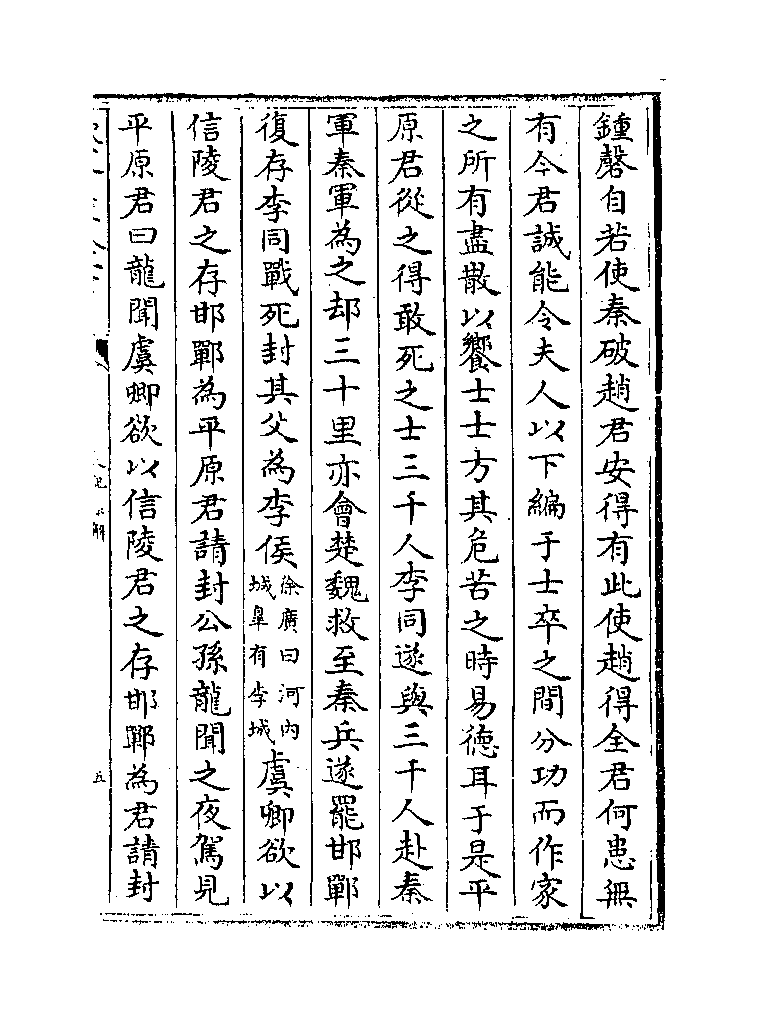 鍾磬自若使秦破趙君安得有此使趙得全君何患無
有今君誠能令夫人以下編于士卒之間分功而作家
之所有盡散以饗士士方其危苦之時易德耳于是平
原君從之得敢死之士三千人李同遂與三千人赴秦
軍秦軍為之却三十里亦會楚魏救至秦兵遂罷邯鄲
復存李同戰死封其父為李侯徐廣曰河內城臯有李城虞卿欲以
信陵君之存邯鄲為平原君請封公孫龍聞之夜駕見
平原君曰龍聞虞卿欲以信陵君之存邯鄲為君請封
五